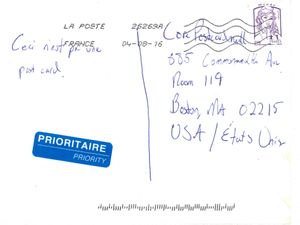 LA POSTE 25269A
FRANCE 04-08-16
Ceci n'est pas une
post card.
Core Postcard
885 Commonwealth Av
Room 119
Boston, MA 02215
USA / États Unis
PRIORITAIRE
PRIORITY